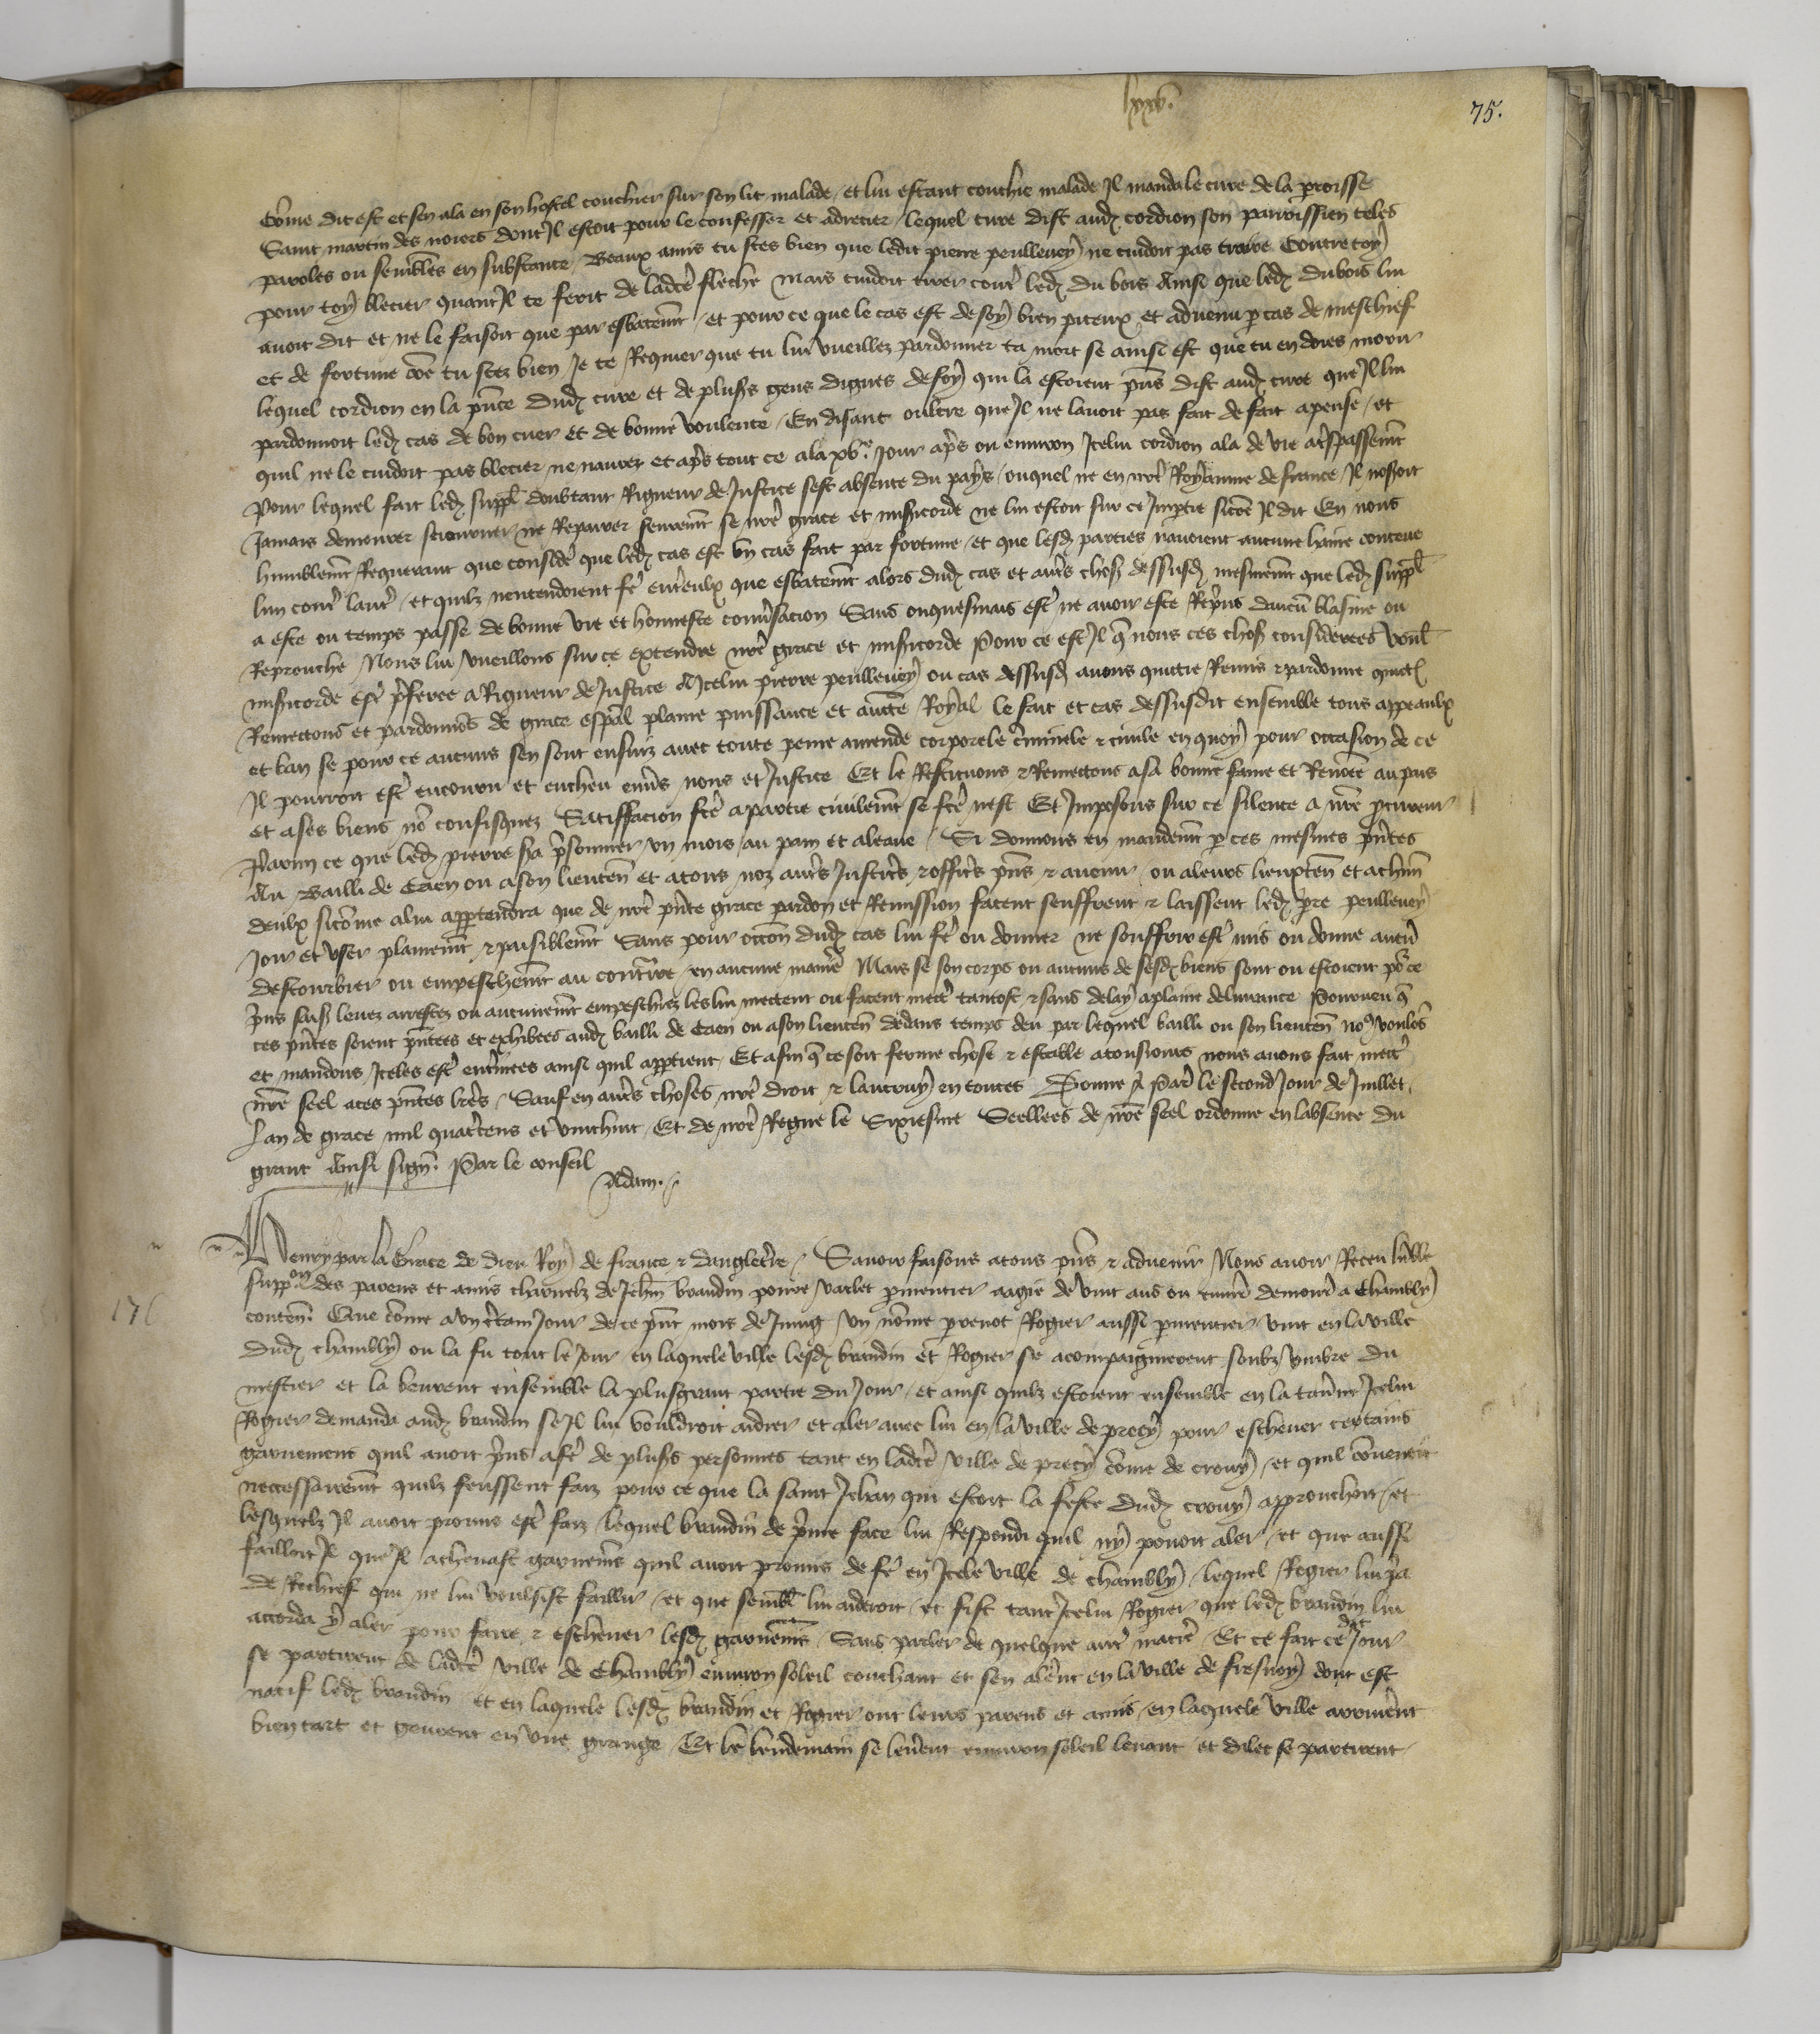 lxxv.
75.
Côme dit est et sen ala en son hostel couchier sur son lit malade / et lui estant couchie malade Il manda le cure de la p̱roisse
Saint martin des noiers dont Il estoit pour le confesser et adrecier / lequel cure dist aud cordion son parroissien teles
paroles ou sembles en substance / Beaux amis tu sces bien que ledit pierre peulleuey ne cuidoit pas traire Contre toy
pour toy blecier quant Il te feri de lad̄cē fleche mais cuidoit tirer cont̄ led du bois Ainsi que led dubois lui
auoit dit et ne le faisoit que par esbatem̄t / et pour ce que le cas est de soy bien piteux et aduenu p̱ cas de meschief
et de fortune cōē tu scez bien Je te Requier que tu lui vueillez pardonner ta mort se ainsi est que tu en doies morir
lequel cordion en la p̄nce dud cure et de plus̄s gens dignes de foy qui la estoient p̄ns dist aud cure que Il lui
pardonnoit led cas de bon cuer et de bonne voulente / En disant oultre que Il ne lauoit pas fait de fait apense / et
quil ne le cuidoit pas blecier ne naurer et ap̄s tout ce ala xv.e Jour ap̄s ou enuiron Icelui cordion ala de vie a t̄spassem̄t
Pour lequel fait led supp̄l doubtant Rigueur de Justice sest absente du pays / ouquel ne en n̄re Royaume de france / Il noseroit
Jamais demourer seiourner ne Reparer seurem̄t se n̄re grace et mis̄icorde ne lui estoit sur ce Imp̱tie sicōē Il dit En nous
humblem̄t Requerant que consid̄e que led cas est vn cas fait par fortune / et que lesd parties nauoient aucune haine conceue
lun cont̄ laut̄ / et quilz nentendoient f̄e ent̄eulx que esbatem̄t alors dud cas et aut̄s chos̄ dessusd mesmem̄t que led supp̄l
a este ou temps passe de bonne vie et honneste conūsacion Sans onquesmais est̄ ne auoir este Rep̄ns daucū blasme ou
Reprouche Nous lui vueillons sur ce extendre n̄re grace et mis̄icorde Pour ce est Il q̄ nous ces chos̄ considerees voul̄
mis̄icorde est̄ p̄feree a Rigueur de Justice A Icelui pierre peulleuey ou cas dessusd auons quictie Remis & pardonne quict̄
Remectons et pardonnōs de grace esp̄al plaine puissance et auct̄e Royal le fait et cas dessusdit ensemble tous appeaulx
et ban se pour ce aucuns sen sont ensuiz auec toute peine amende corporele c̄minele & ciuile en quoy pour occasion de ce
Il pourroit est̄ encouru et encheu enūs nous et Justice Et le Restituons & Remectons a sa bonne fame et Renōēē au pais
et a ses biens nō confisquez Satiffacion f̄cē a partie ciuilem̄t se f̄cē nest Et Imposons sur ce silence a n̄re p̱cureur
Parmi ce que led pierre s̄a p̄sonnier vn mois au pain et a leaue / Si donnons en mandem̄t p̱ ces mesmes p̄ntes
Au Bailli de Caen ou a son lieuten̄ et a tous noz aut̄s Justic̄s & offic̄s p̄ns & auenir ou a leurs lieuxten̄ et a chūn
deulx sicōme a lui app̱tendra que de n̄re p̄nte grace pardon et Remission facent seuffrent & laissent led p̄re peulleuey
Joir et vser plainem̄t & paisiblem̄t Sans pour occon̄ dud cas lui f̄e ou donner ne souffrir est̄ mis ou donne aucū
destourbier ou empeschem̄t au cont̄re / en aucune manie͛ Mais se son corps ou aucuns de sesd biens sont ou estoient po̅ ce
p̄ns saisis leuez arrestez ou aucunem̄t empeschiez les lui mectent ou facent mect̄ tantost & sans delay a plaine deliurance Pourueu q̄
ces p̄ntes soient p̄ntees et exhibees aud bailli de Caen ou a son lieuten̄ dedans temps deu par lequel bailli ou son lieuten̄ no9 voulōs
et mandons Iceles est̄ ent̄inees ainsi quil app̱tient / Et afin q̄ ce soit ferme chose & estable a tousiours nous auons fait mect̄
n̄re seel a ces p̄ntes l̄res / Sauf en aut̄s choses n̄re droit & lautruy en toutes Donne a Par̄ le second Jour de Juillet
Lan de grace mil quat̄cens et vinthuit / Et de n̄re Regne le Sixiesme Seellees de n̄re seel ordonne en labsence du
grant Ainsi sign̄. Par le conseil
Adam.
Henry par la Grace de dieu Roy de france & dangleterre / Sauoir faisons a tous p̄ns & aduenir Nous auoir Receu lūble
suppon des parens et amis charnelz de Jeh̄n brandin poure varlet p̱mentier aagie de vint ans ou enuir̄ demour̄ a Chambly
conten̄. Que cōme a vn c̄tain Jour de ce p̄nt mois de Juing vn nōme p̱renot Rogier aussi p̱mentier vint en la ville
dud chambly ou la fu tout le Jour / en laquele ville lesd brandin et Rogier se acompaignierent soubz vmbre du
mestier et la beurent ensemble la plusgrant partie du Jour / et ainsi quilz estoient ensemble en la taūne Icelui
Rogier demanda aud brandin se Il lui vouldroit aidier et aler auec lui en la ville de precy pour escheuer certains
garnemens quil auoit p̄ns a f̄e de plus̄s personnes tant en lad̄cē ville de precy cōme de crouy / et quil cōuenoit
neccessairem̄t quilz feussent faiz pour ce que la saint Jehan qui estoit la feste dud crouy approuchoit / et
lesquelz Il auoit promis est̄ faiz / lequel brandin de p̄me face lui Respondi quil ny pouoit aler / et que aussi
failloit Il que Il acheuast garnem̄s quil auoit promis de f̄e en Icele ville de chambly / lequel Rogier lui p̄a
de Rechief qui ne lui voulsist faillir / et que sembl̄ lui aideroit / et fist tant Icelui Rogier que led brandin lui
accorda y aler pour faire & escheuer lesd garnem̄s / Sans parler de quelque aut̄ matie͛ Et ce fait ce dit Jour
se partirent de lad̄cē ville de Chambly enuiron soleil couchant et sen alerēt en la ville de fresnoy dont est
natif led brandin et en laquele lesd brandin et Rogier ont leurs parens et amis / en laquele ville arriuerēt
bien tart et geurent en vne grange / Et le lendemain se leuerēt enuiron soleil leuant et dilec se partirent